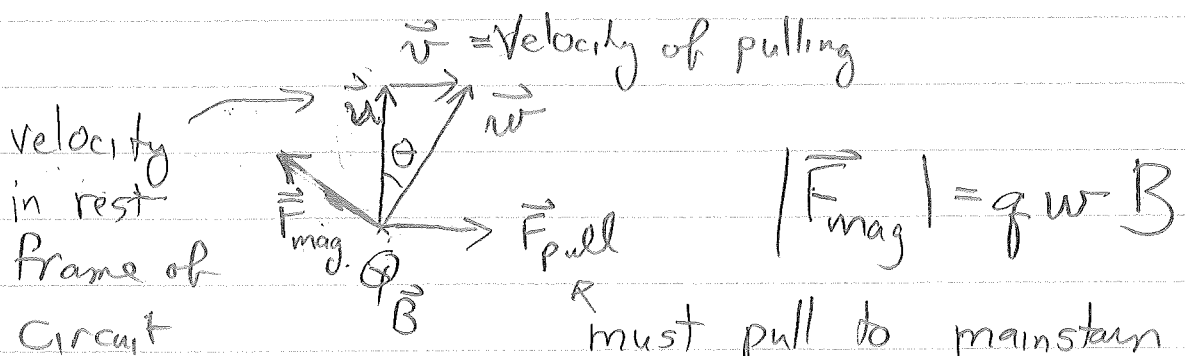 v⃗ = Velocity of pulling
velocity in rest frame of circuit
u⃗ w⃗
θ
F⃗mag. F⃗pull
B⃗
|F⃗mag| = q w B
must pull to mainstain